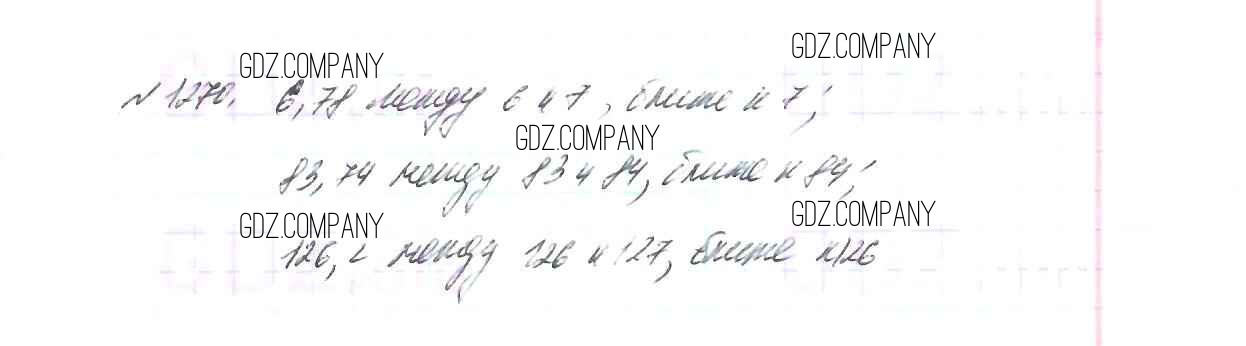 GDZ.COMPANY
GDZ.COMPANY
№1270. 6,78 между 6 и 7, ближе к 7;
GDZ.COMPANY
83,74 между 83 и 84, ближе к 84;
GDZ.COMPANY
GDZ.COMPANY
126,2 между 126 и 127, ближе к 126